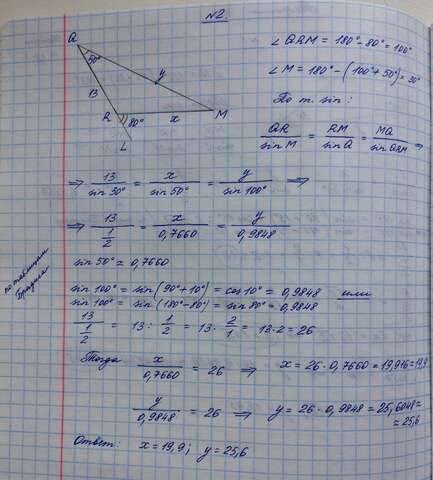 №2.
Q
50°
13
R
80°
L
x
y
M
∠QRM = 180° - 80° = 100°
∠M = 180° - (100° + 50°) = 30°
По т. sin:
QR/sin M = RM/sin Q = MQ/sin QRM ⇒
⇒ 13/sin 30° = x/sin 50° = y/sin 100° ⇒
⇒ 13/(1/2) = x/0,7660 = y/0,9848
sin 50° = 0,7660
sin 100° = sin(90° + 10°) = cos 10° = 0,9848 или
sin 100° = sin(180° - 80°) = sin 80° = 0,9848
13/(1/2) = 13 : 1/2 = 13 · 2/1 = 13 · 2 = 26
Тогда: x/0,7660 = 26 ⇒ x = 26 · 0,7660 = 19,916 = 19,9
y/0,9848 = 26 ⇒ y = 26 · 0,9848 = 25,6048 =
= 25,6
Ответ: x = 19,9; y = 25,6